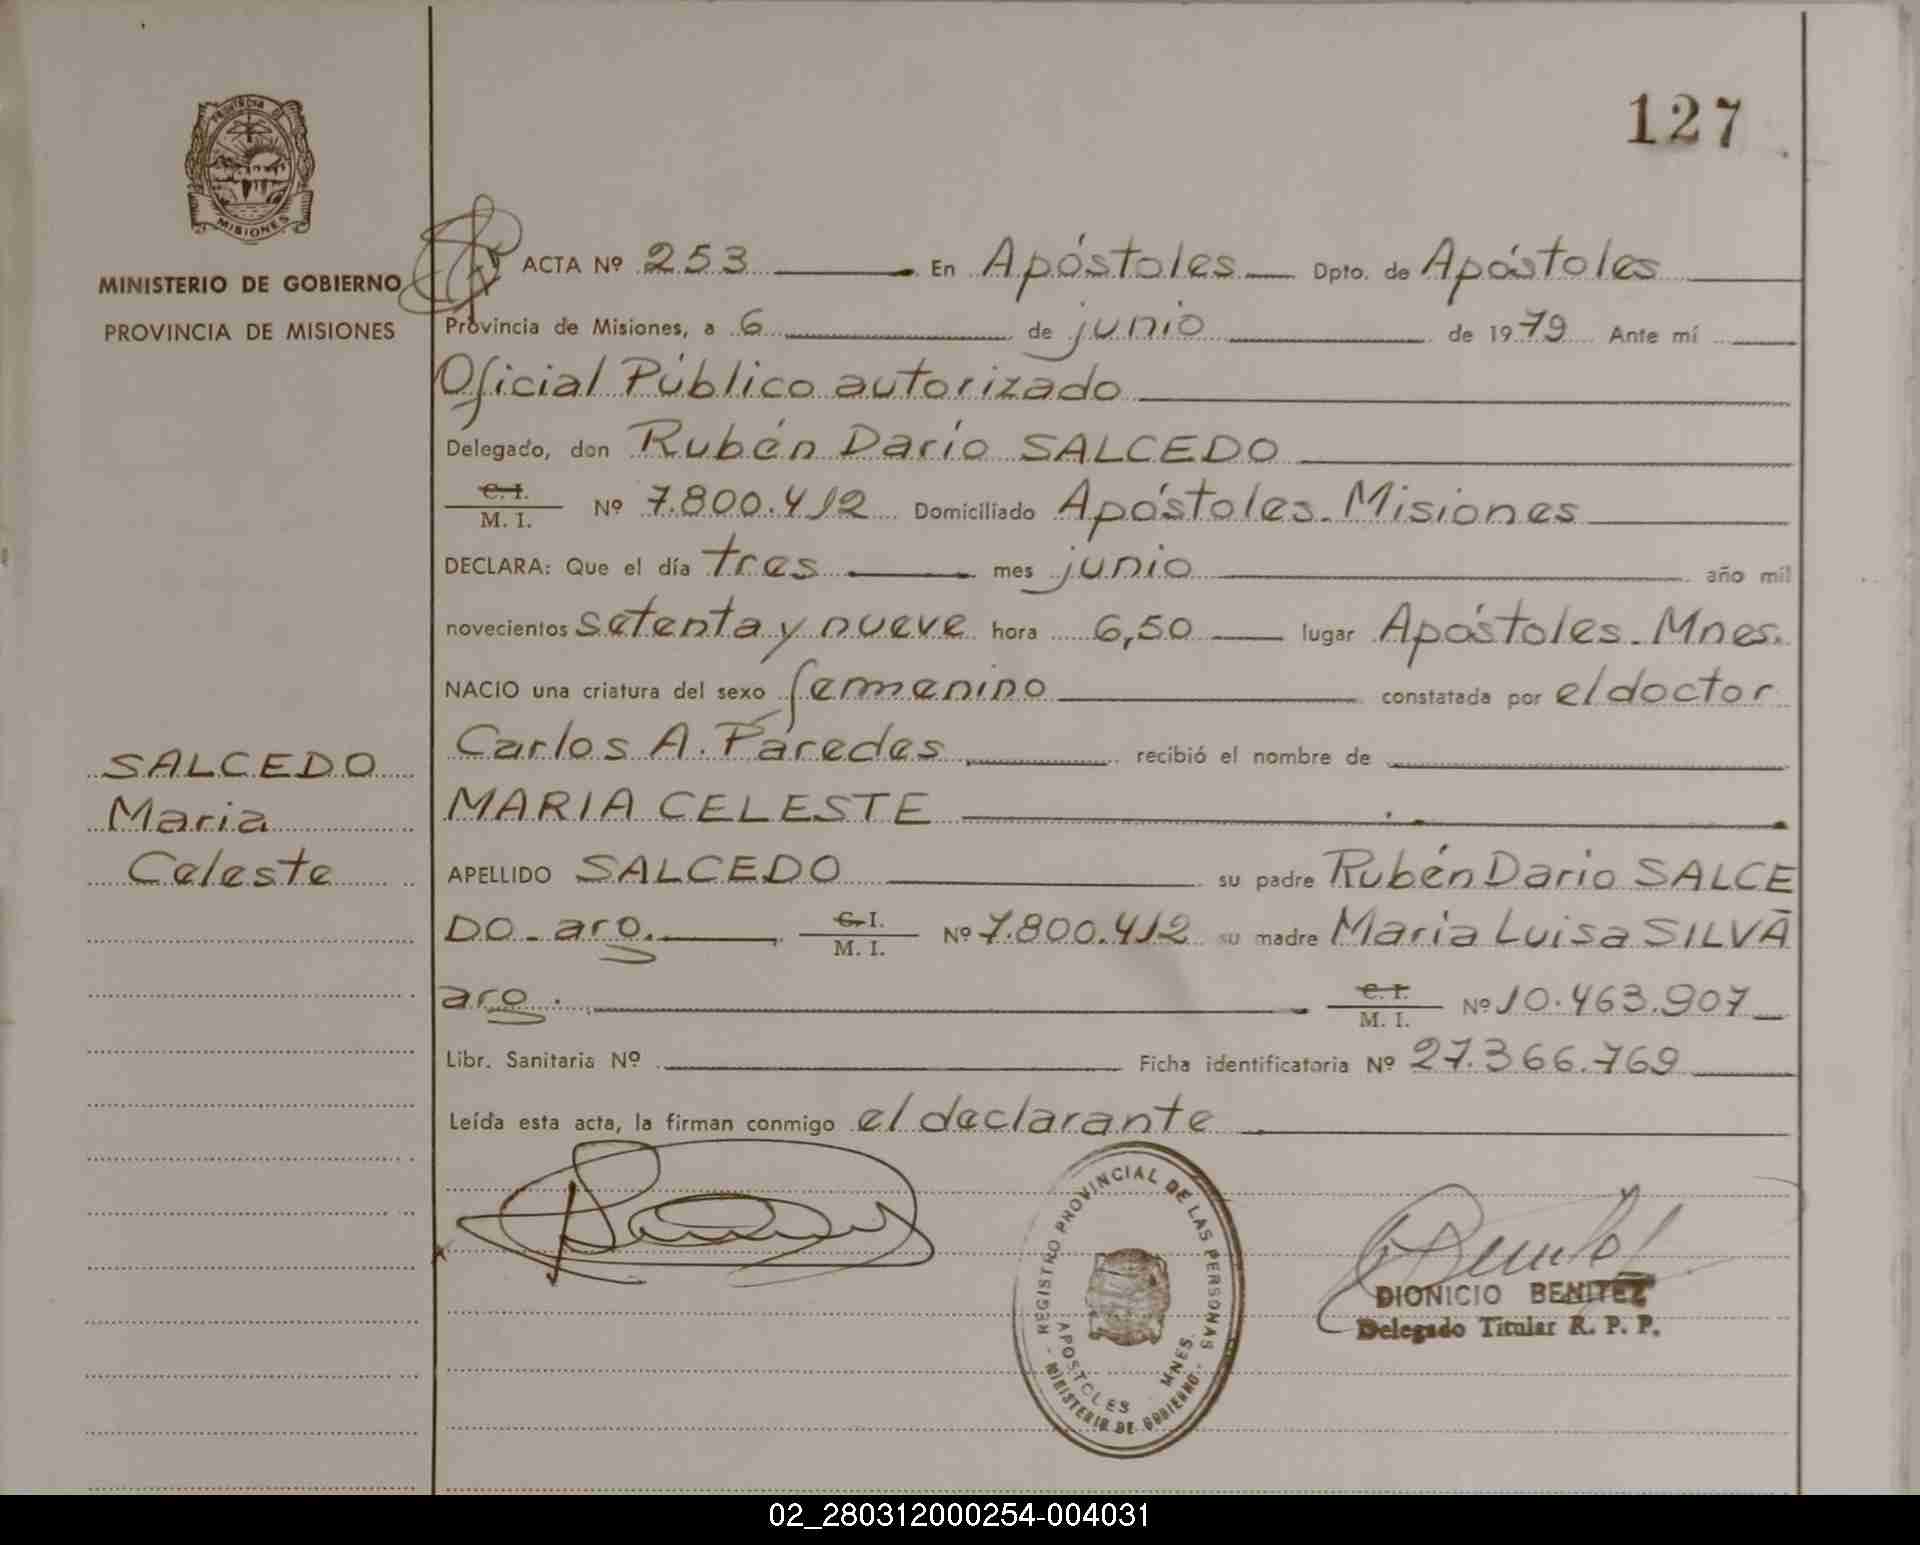 PROVINCIA DE
MISIONES
MINISTERIO DE GOBIERNO
PROVINCIA DE MISIONES
127
ACTA Nº 253 En Apóstoles Dpto. de Apóstoles
Provincia de Misiones, a 6 de junio de 1979 Ante mí
Oficial Público autorizado
Delegado, don Rubén Darío SALCEDO
C. I.
M. I. Nº 7.800.412 Domiciliado Apóstoles. Misiones
DECLARA: Que el día tres mes junio año mil
novecientos setenta y nueve hora 6,50 lugar Apóstoles. Mnes.
NACIO una criatura del sexo femenino constatada por el doctor
Carlos A. Paredes recibió el nombre de
MARIA CELESTE
SALCEDO
Maria
Celeste
APELLIDO SALCEDO su padre Rubén Dario SALCE
DO - aro. C. I.
M. I. Nº 7.800.412 su madre Maria Luisa SILVA
aro. C. I.
M. I. Nº 10.463.907
Libr. Sanitaria Nº Ficha identificatoria Nº 27.366.769
Leída esta acta, la firman conmigo el declarante
REGISTRO PROVINCIAL DE LAS PERSONAS
APOSTOLES MNES.
- MINISTERIO DE GOBIERNO -
DIONICIO BENITEZ
Delegado Titular R. P. P.
02_280312000254-004031